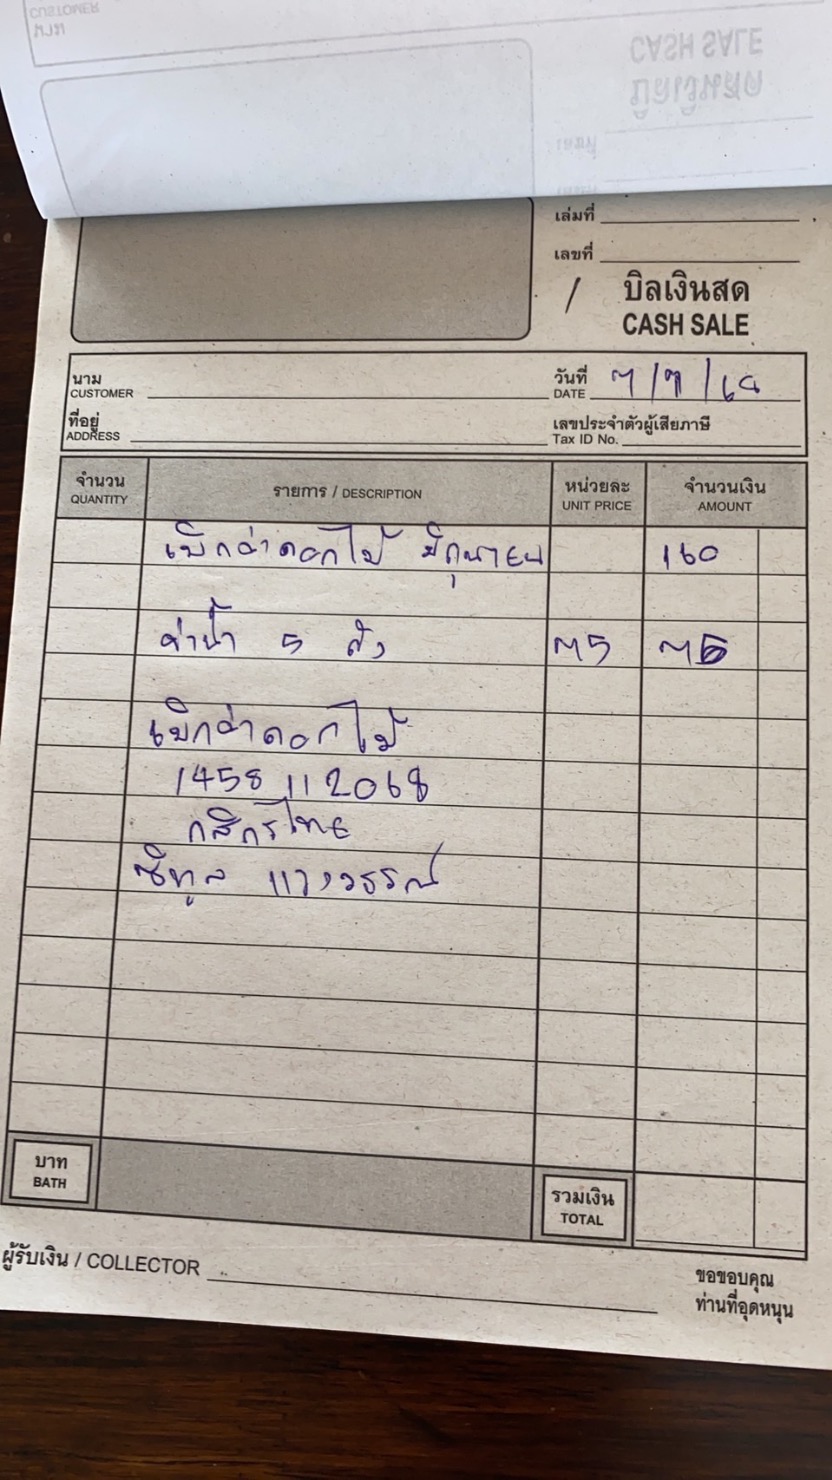 CUSTOMER
นาม
CASH SALE
บิลเงินสด
เล่มที่
เลขที่
/ บิลเงินสด
CASH SALE
นาม
CUSTOMER
วันที่
DATE
ที่อยู่
ADDRESS
เลขประจำตัวผู้เสียภาษี
Tax ID No.
จำนวน
QUANTITY
รายการ / DESCRIPTION
หน่วยละ
UNIT PRICE
จำนวนเงิน
AMOUNT
เบิกค่าดอกไม้ มิถุนายน 160
ค่าน้ำ 5 ถัง
เบิกค่าดอกไม้
1458 11 2068
กสิกรไทย
บาท
BATH
รวมเงิน
TOTAL
ผู้รับเงิน / COLLECTOR
ขอขอบคุณ
ท่านที่อุดหนุน